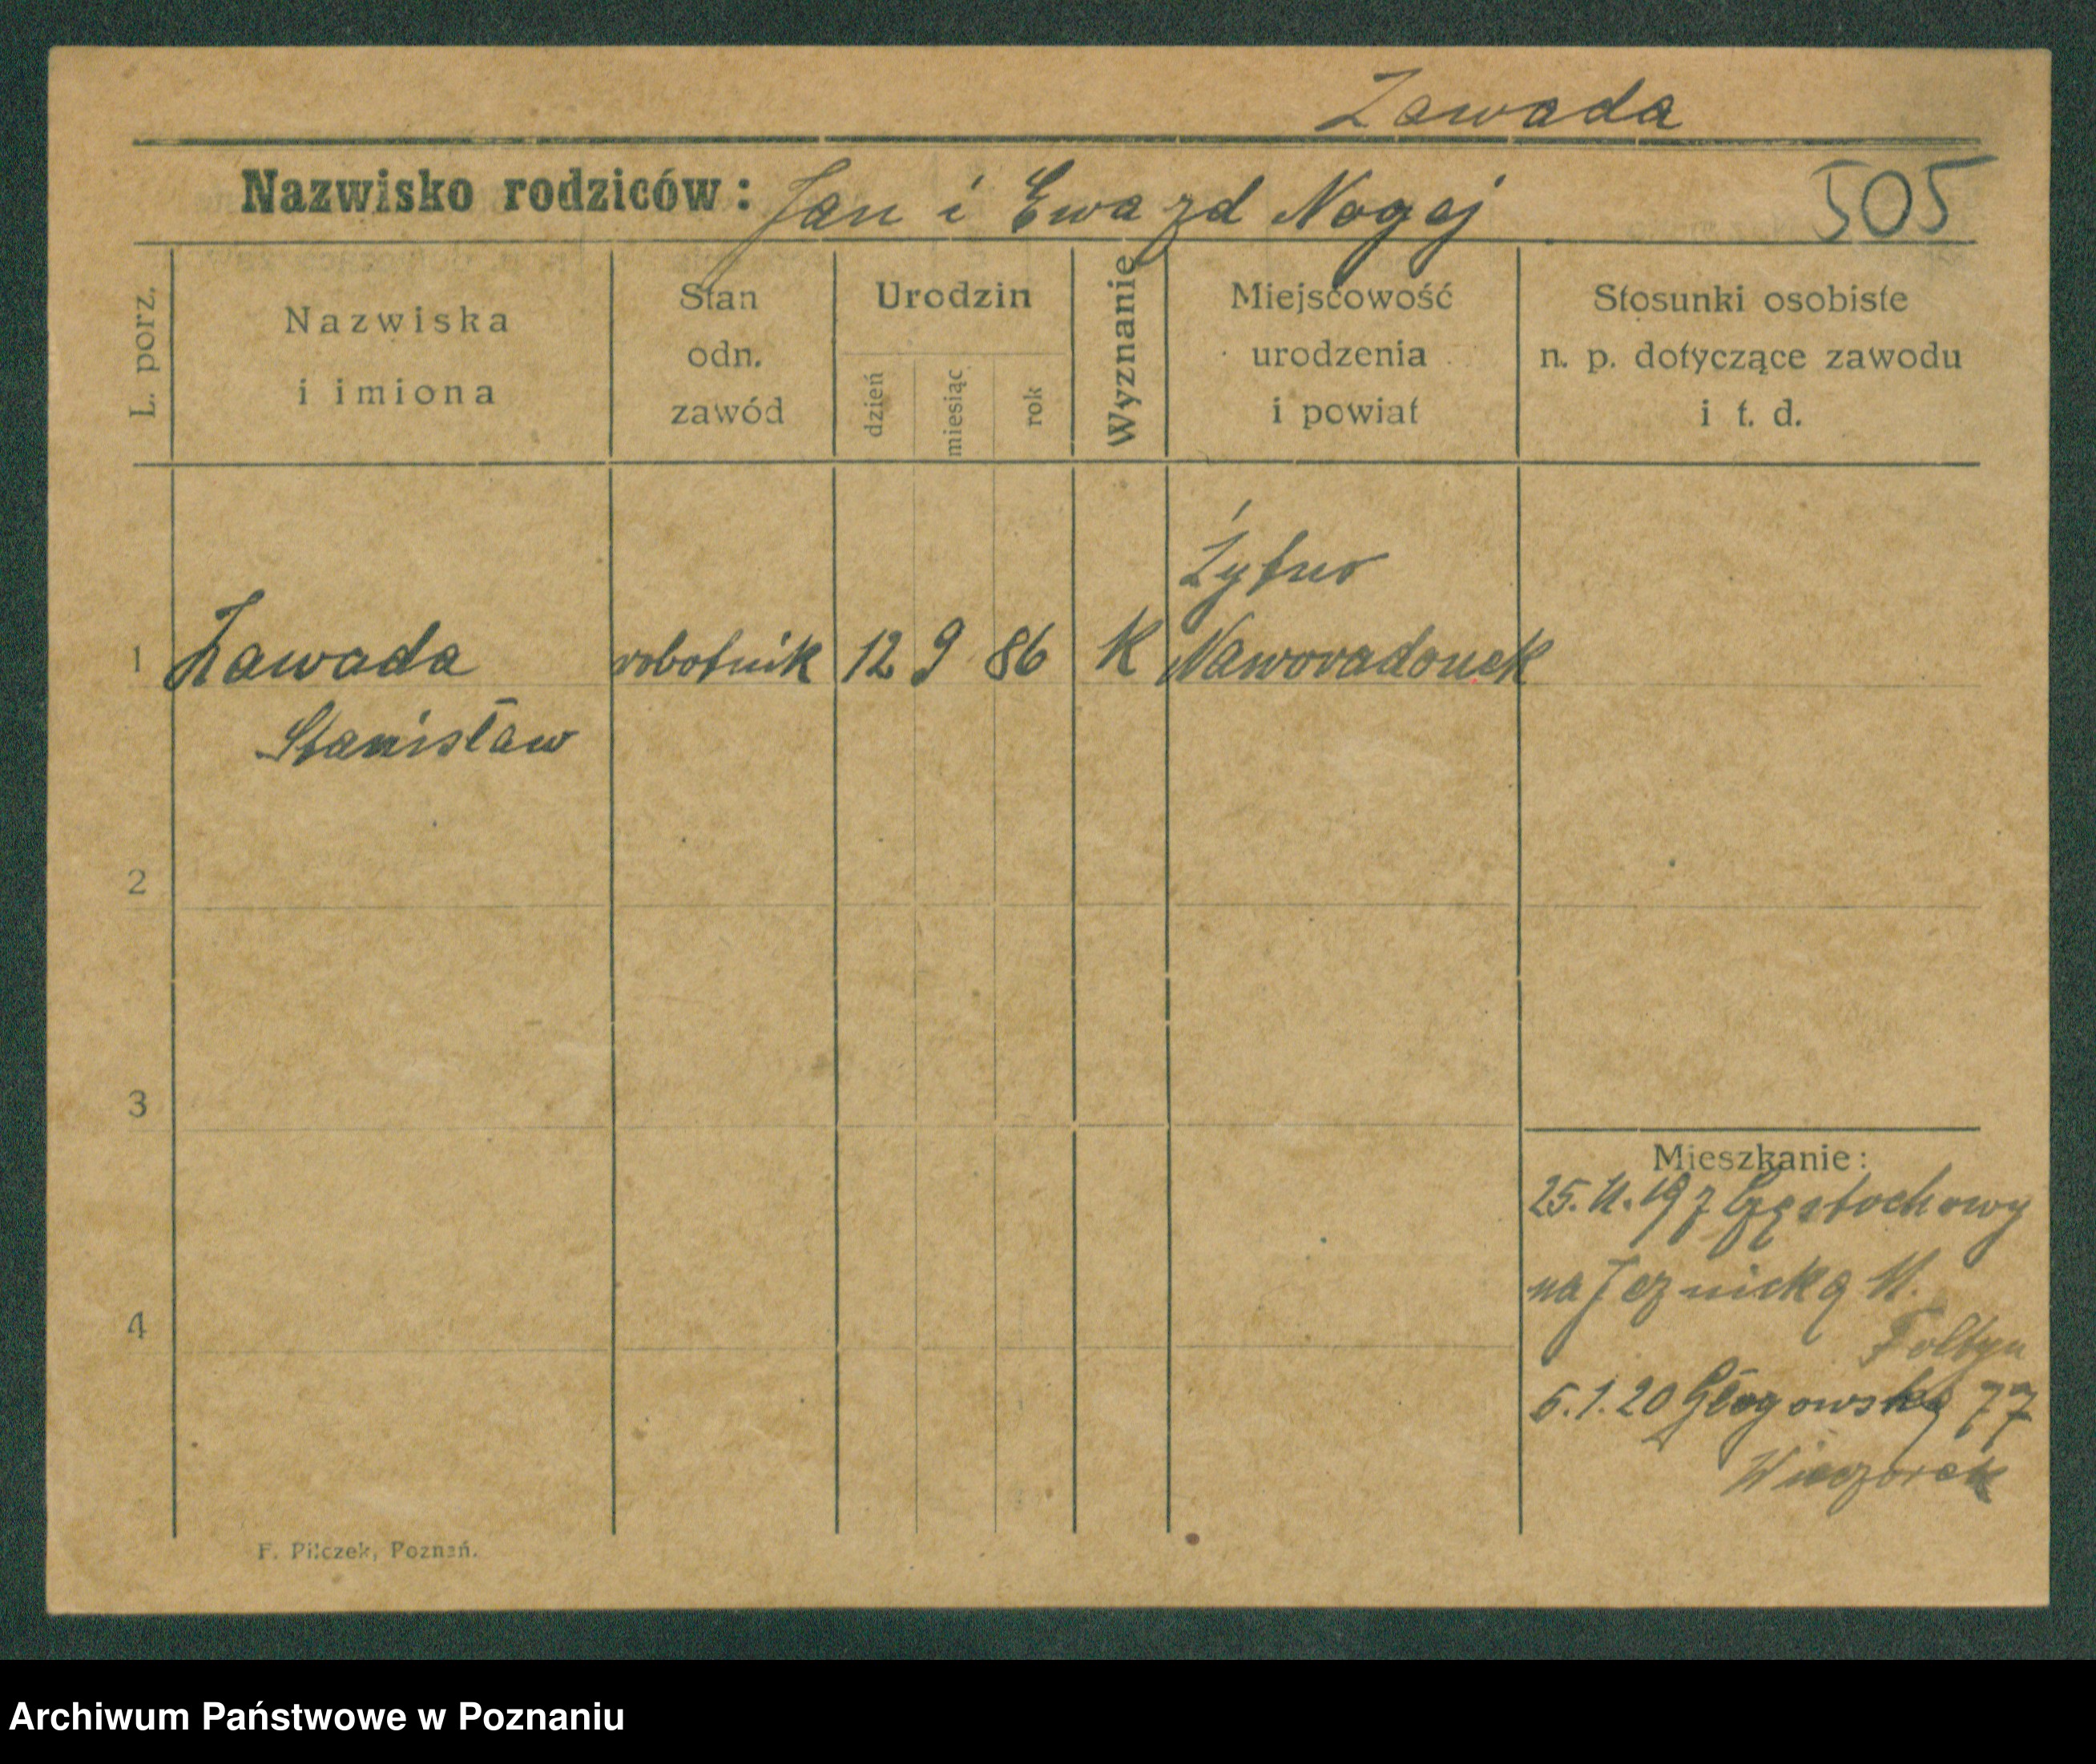 Zawada
Nazwisko rodziców: Jan i Ewa zd Nogaj
505
L. porz.
Nazwiska
i imiona
Stan
odn.
zawód
Urodzin
dzień
miesiąc
rok
Wyznanie
Miejscowość
urodzenia
i powiat
Stosunki osobiste
n. p. dotyczące zawodu
i t. d.
Żytno
1 Zawada robotnik 12 9 86 K Naworadomsk
Stanisław
2
3
4
Mieszkanie:
25. 11. 19 z Częstochowy
na 11.
5. 1. 20 Głogowska 77
Wieczorek
F. Pilczek, Poznań.
Archiwum Państwowe w Poznaniu